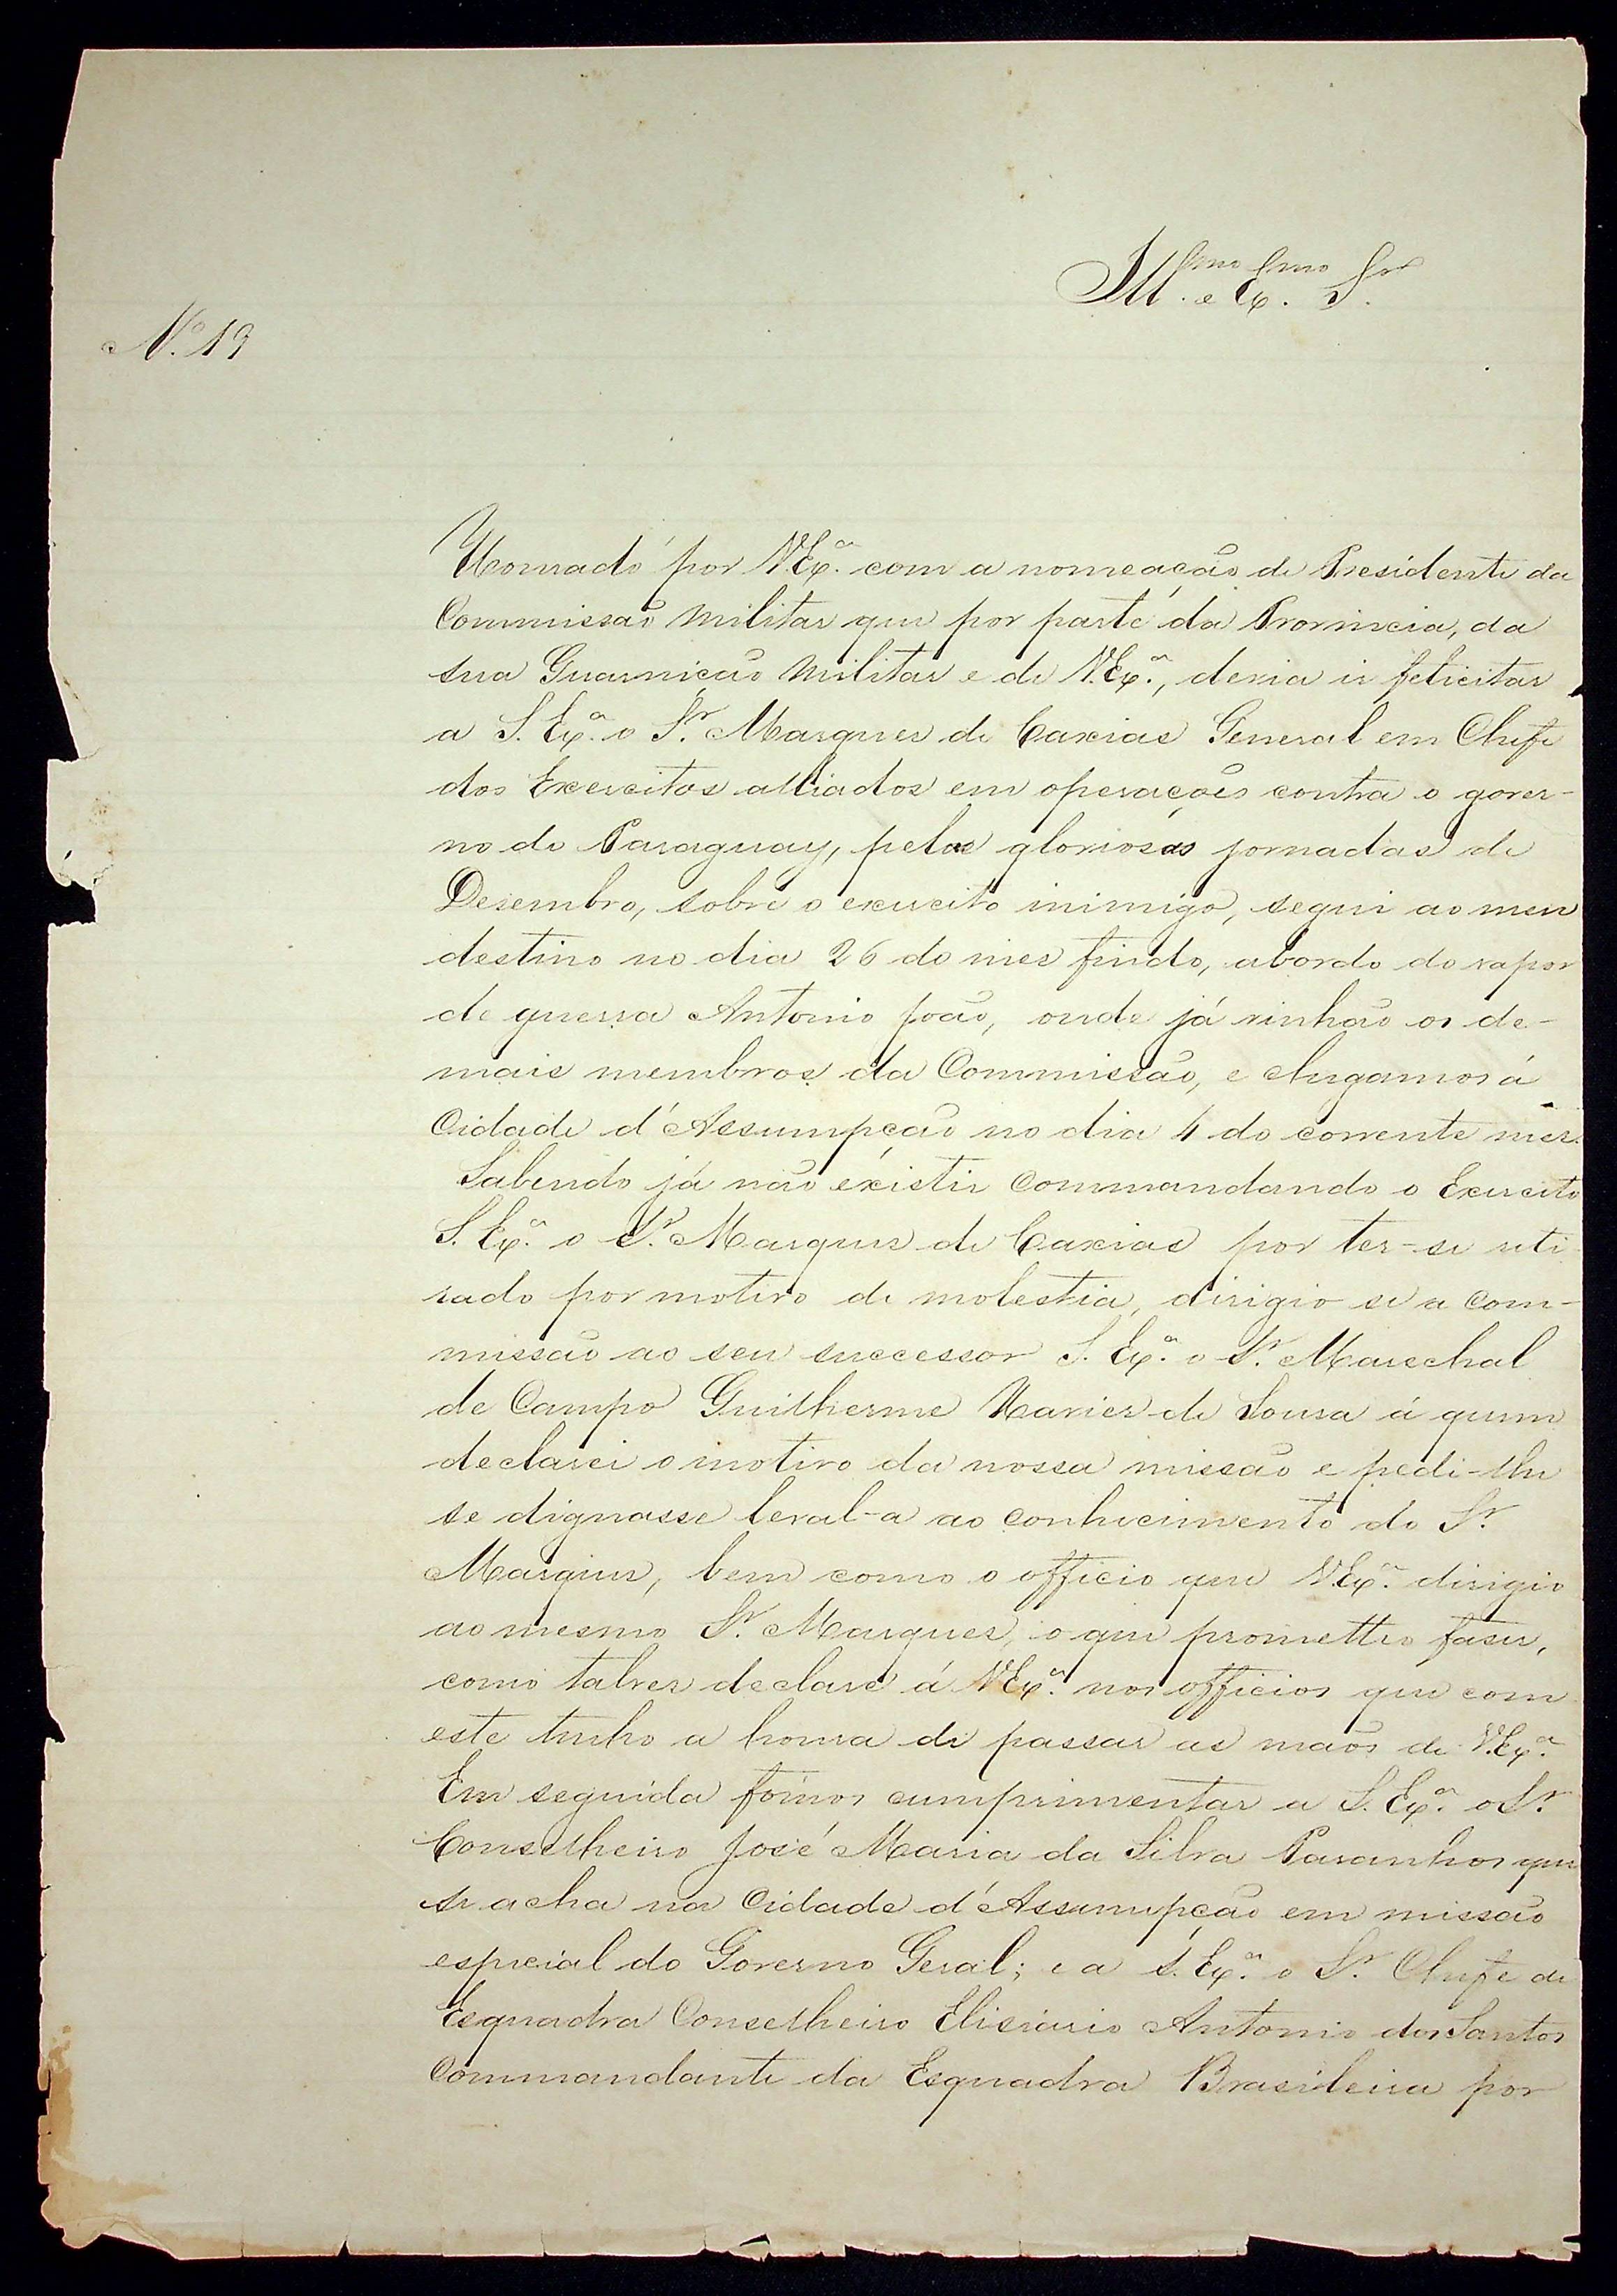 Ill.mo e Ex.mo Sor.
N.º 19
Honrado por V.Exª. com a nomeação de Presidente da
Commissão militar que por parte da Provincia, da
sua Guarnição militar e de V.Exª., devia ir felicitar
a S. Exª. o Sr. Marques de Caxias General em Chefe
dos Exercitos alliados em operações contra o gover-
no do Paraguay, pelas gloriosas jornadas de
Desembro, sobre o exercito inimigo, segui ao meu
destino no dia 26 do mes findo, abordo do vapor
de guerra Antonio João, onde já vinhão os de-
mais membros da Commissão, e chegamos á
Cidade d'Assumpção no dia 4 do corrente mes.
Sabendo já não existir commandando o Exercito
S. Exª. o Sr. Marques de Caxias por ter-se reti
rado por motivo de molestia, dirigio se a com-
missão ao seu successor S. Exª. o Sr. Marechal
de Campo Guilherme Xavier de Sousa á quem
declarei o motivo da nossa missão e pedi-lhe
se dignasse leval-a ao conhecimento do Sr.
Marques, bem como o officio que V.Exª. dirigio
ao mesmo Sr. Marques, o que prometteo faser,
como talves declare á V.Exª. nos officios que com
este tenho a honra de passar as mãos de V.Exª.
Em seguida fómos cumprimentar a S. Exª. o Sr.
Conselheiro José Maria da Silva Paranhos que
se acha na Cidade d'Assumpção em missão
especial do Governo Geral; e a S. Exª. o Sr. Chefe de
Esquadra Conselheiro Elisiario Antonio dos Santos
Commandante da Esquadra Brasileira por